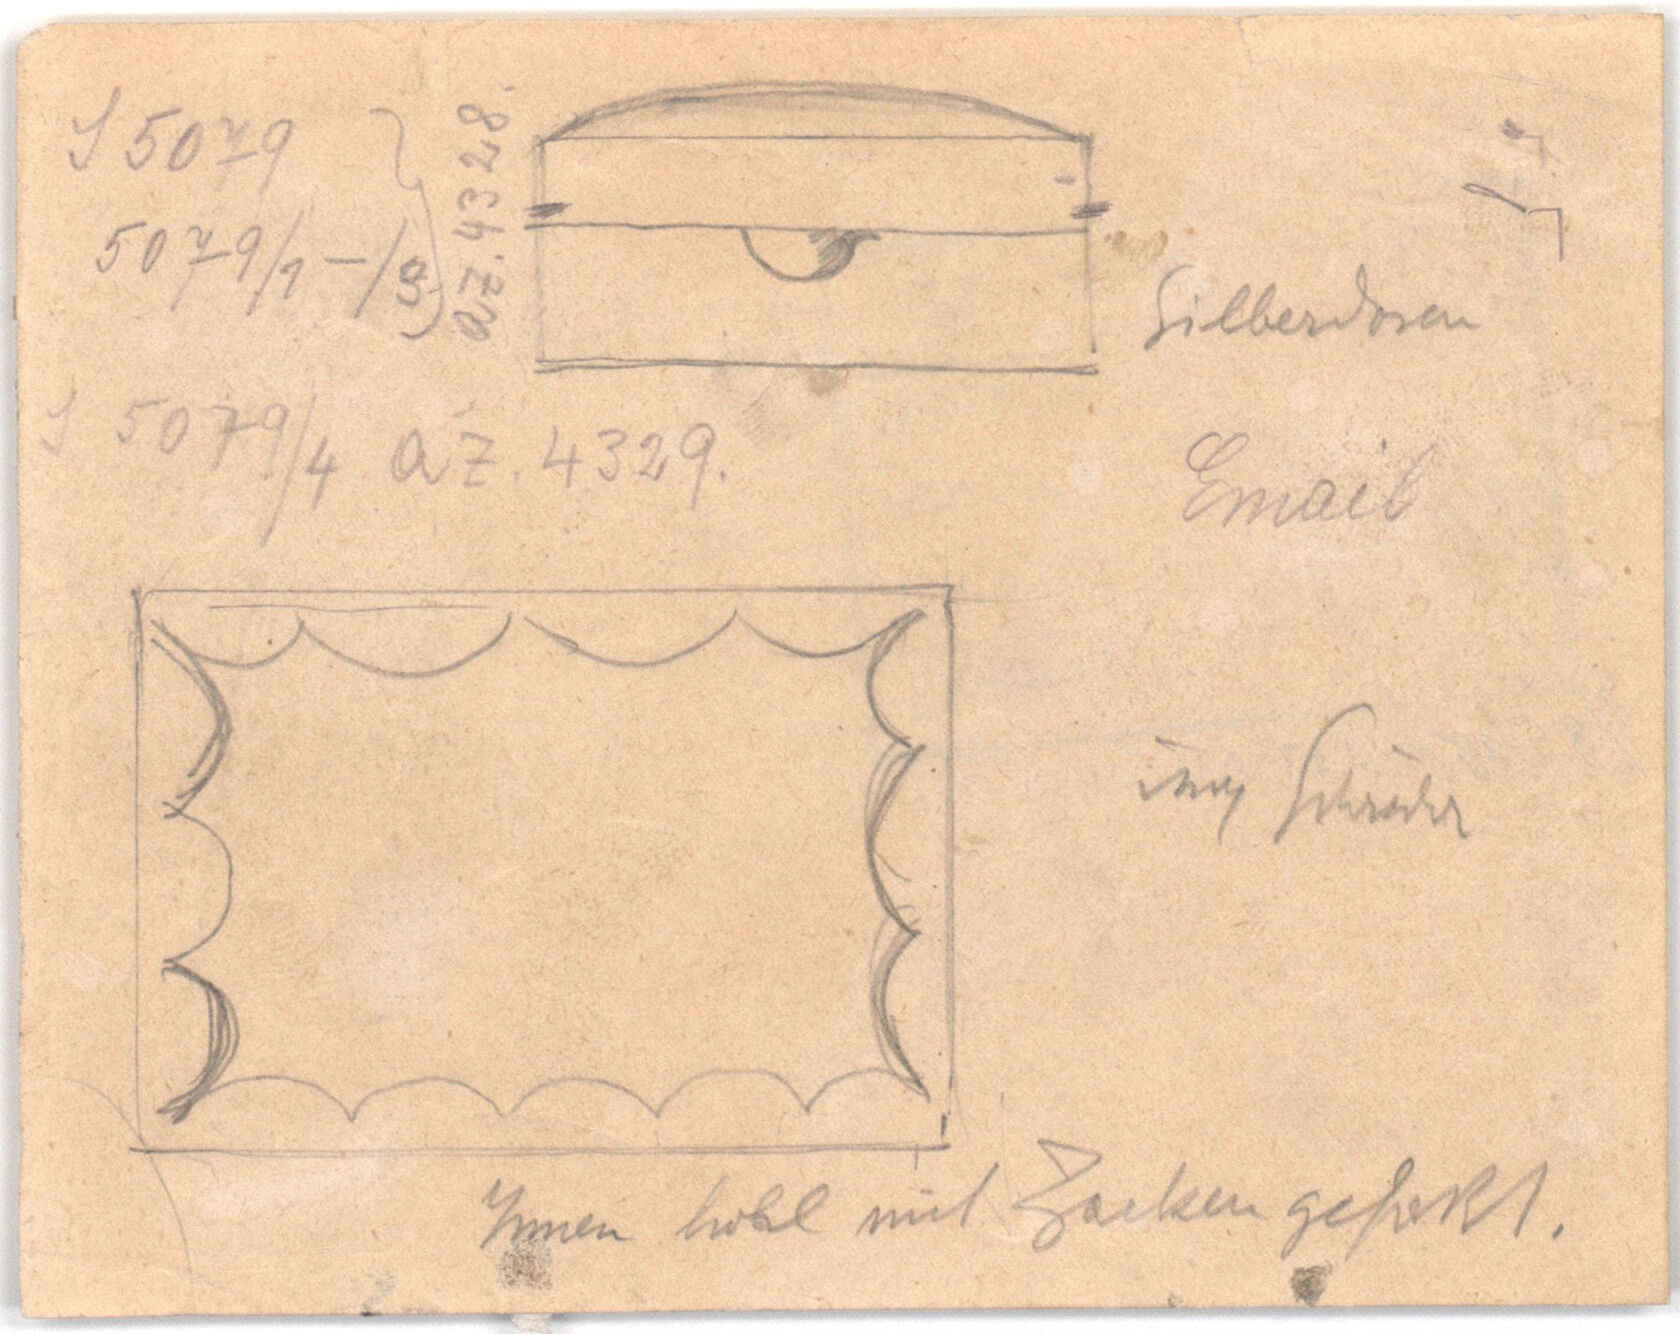 S 5079
5079/1 - /3
az. 4328.
S 5079/4 az. 4329.
Silberdosen
Email
Schröder
Innen hohl mit Zacken gefaßt.